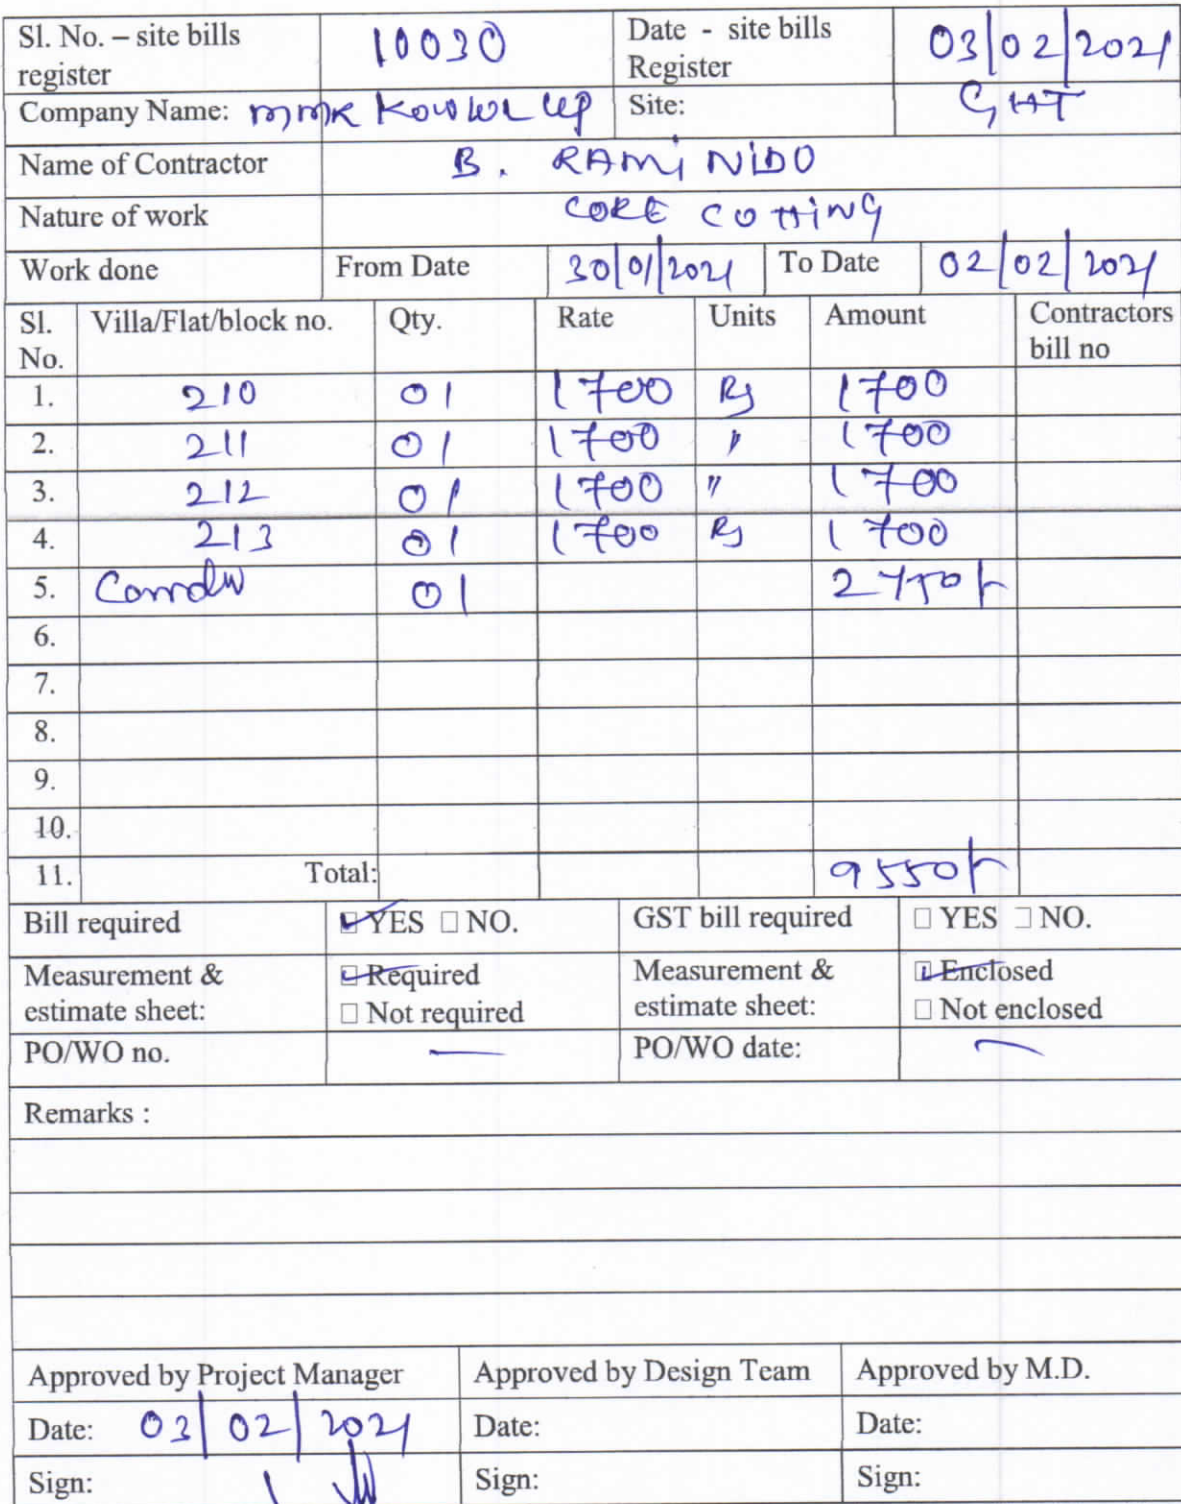 Sl. No. – site bills register 10030 Date - site bills Register 03/02/2021
Company Name: MMK KOWWL LLP Site: GHT
Name of Contractor B. RAMI NIDO
Nature of work CORE COTTING
Work done From Date 30/01/2021 To Date 02/02/2021
Sl. No. Villa/Flat/block no. Qty. Rate Units Amount Contractors bill no
1. 210 01 1700 Rs 1700
2. 211 01 1700 " 1700
3. 212 01 1700 " 1700
4. 213 01 1700 Rs 1700
5. 01 2750/-
6.
7.
8.
9.
10.
11. Total: 9550/-
Bill required ☑ YES □ NO. GST bill required □ YES □ NO.
Measurement & estimate sheet: ☑ Required □ Not required Measurement & estimate sheet: ☑ Enclosed □ Not enclosed
PO/WO no. — PO/WO date: —
Remarks :
Approved by Project Manager Approved by Design Team Approved by M.D.
Date: 03/02/2021 Date: Date:
Sign: Sign: Sign: